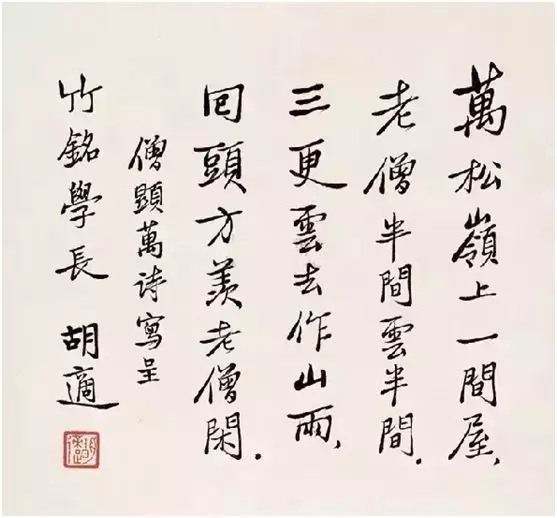 萬松嶺上一間屋、
老僧半間雲半間．
三更雲去作山雨、
回頭方羨老僧閑．
僧顯萬诗寫呈
竹銘學長 胡適
胡適